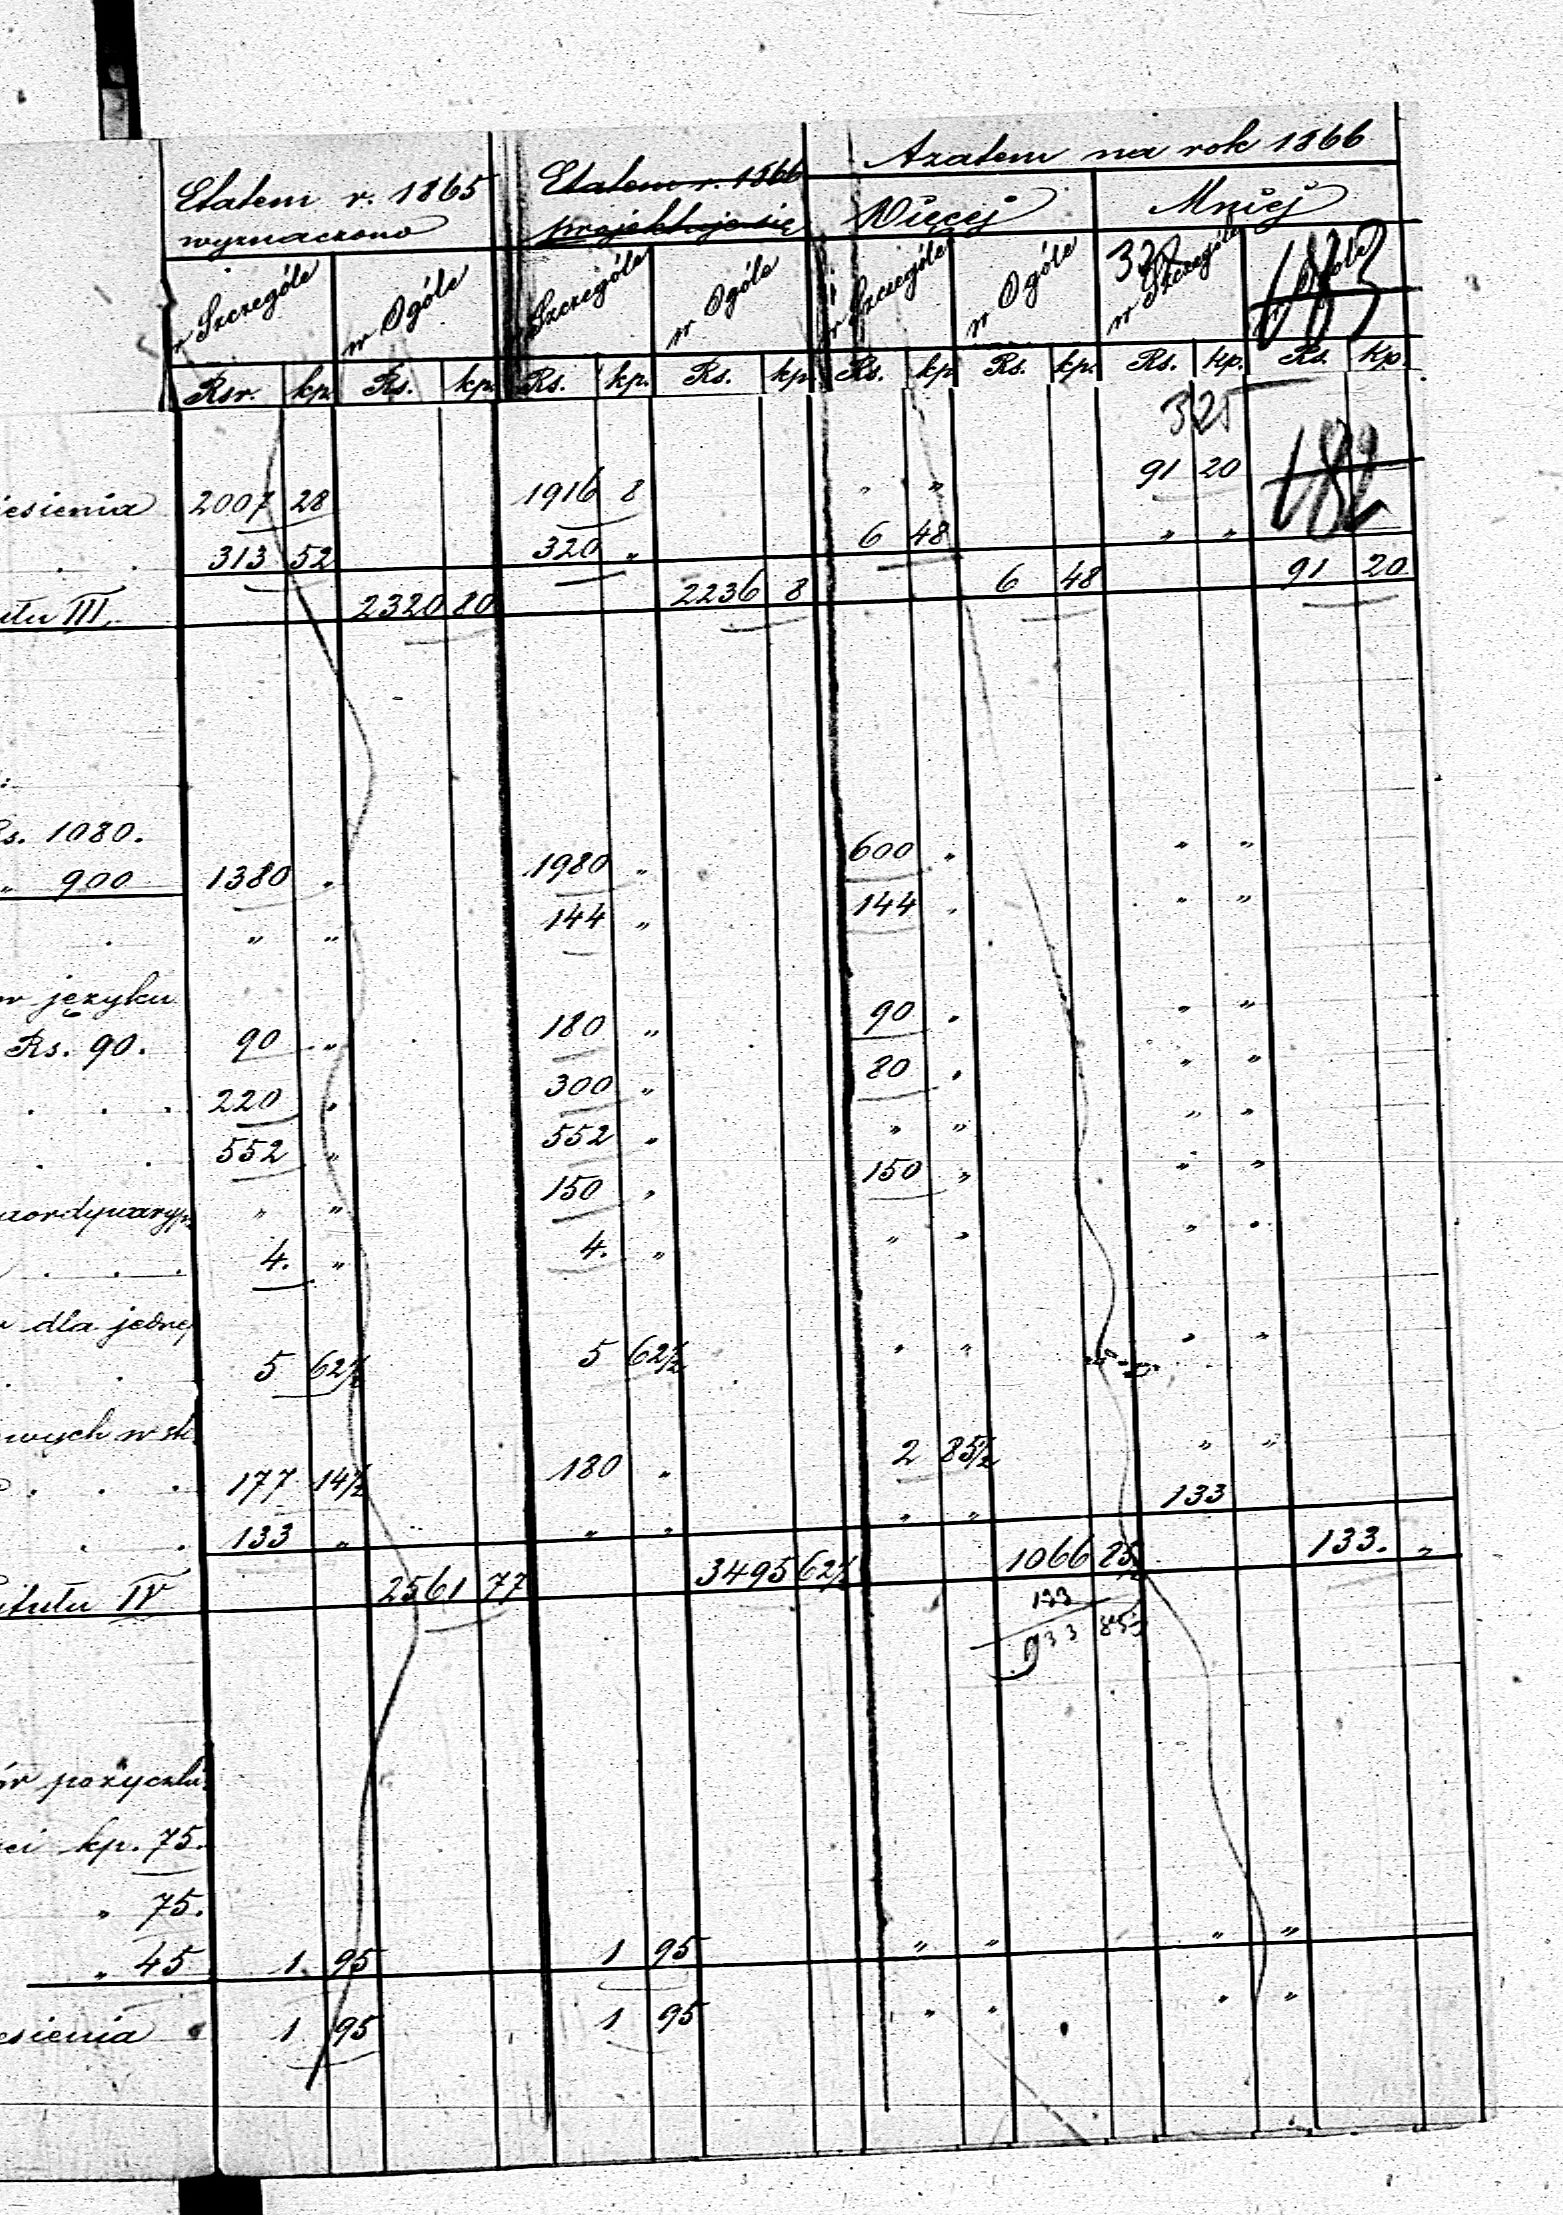 Azatem na rok 1866
Etatem r. 1865 Etatem r. 1866
wyznaczono projektuje się Więcej Mniej
w Szczególe w Ogóle w Szczególe w Ogóle w Szczególe w Ogóle w Szczególe w Ogóle
183
Rsr. kp. Rs. kp. Rs. kp. Rs. kp. Rs. kp. Rs. kp. Rs. kp. Rs. kp.
325
182
iesienia 2007 28 1916 8 " " 91 20
313 52 320 " 6 48 " "
utu III 2320 80 2236 8 6 48 91 20
Rs. 1080.
" 900 1380 " 1980 " 600 " " "
" " 144 " 144 " " "
w języku
Rs. 90. 90 " 180 " 90 " " "
220 " 300 " 80 " " "
552 " 552 " " " " "
aordynaryjn " " 150 " 150 " " "
4. " 4. " " " " "
dla jednej
5 62½ 5 62½ " " " "
wych w sk
177 14½ 180 " 2 85½ " "
133 " " " " " 133
itutu IV 2561 77 3495 62½ 1066 85½ 133. "
133
933 85½
ów pożyczki
ci kp. 75.
" 75.
" 45 1 95 1 95 " " " "
esienia 1 95 1 95 " " " "